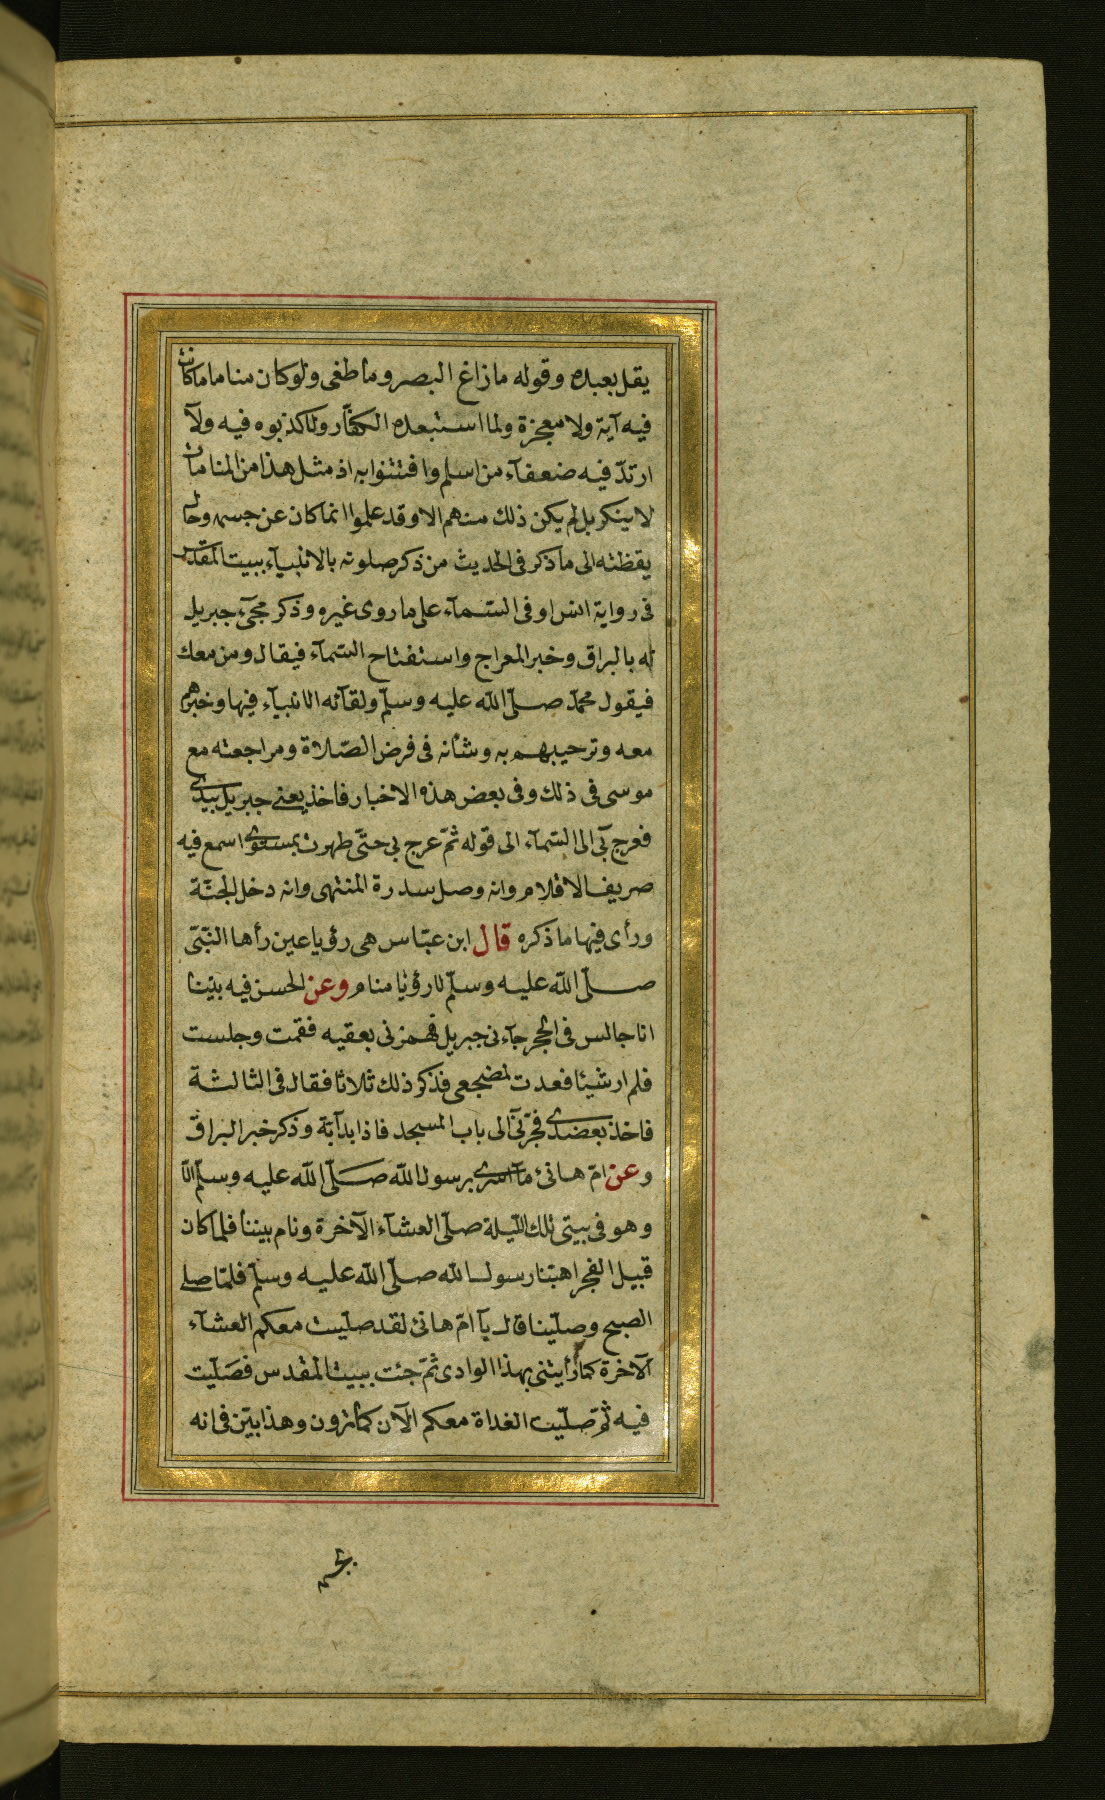 يقل بعبده وقوله ما زاغ البصر وما طغى ولو كان مناما ما كانت
فيه آية ولا معجزة ولما استبعده الكفّار ولا كذبوه فيه ولآ
ارتدّ فيه ضعفآء من اسلم وافتتنوا به اذ مثل هذا من المنامات
لا ينكر بل لم يكن ذلك منهم الا وقد علموا انما كان عن جسمه وحال
يقظته الى ما ذكر فى الحديث من ذكر صلوته بالانبيآء ببيت المقدس
فى رواية انس او فى السّمآء على ما روى غيره وذكر مجىء جبريل
له بالبراق وخبر المعراج واستفتاح السّمآء فيقال ومن معك
فيقول محمّد صلّى الله عليه وسلّم ولقآئه الانبيآء فيها وخبرهم
معه وترحيبهم به وشأنه فى فرض الصّلاة ومراجعته مع
موسى فى ذلك وفى بعض هذه الاخبار فاخذ يعنى جبريل بيدى
فعرج بى الى السّمآء الى قوله ثمّ عرج بى حتّى ظهرت بمستوى اسمع فيه
صريف الاقلام وانه وصل سدرة المنتهى وانه دخل الجنّة
ورأى فيها ما ذكره قال ابن عبّاس هى رؤيا عين رأها النّبىّ
صلّى الله عليه وسلّم لا رؤيا منام وعن الحسن فيه بينا
انا جالس فى الحجر جآءنى جبريل فهمزنى بعقبه فقمت وجلست
فلم ار شيئا فعدت لمضجعى فذكر ذلك ثلاثا فقال فى الثالثة
فاخذ بعضدى فجرّنى الى باب المسجد فاذا بدآبّة وذكر خبر البراق
وعن امّ هانئ مآ اسرى برسول الله صَلّى الله عليه وسلّم الّا
وهو فى بيتى تلك اللّيلة صلّى العشآء الآخرة ونام بيننا فلما كان
قبيل الفجر اهبّنا رسول الله صلّى الله عليه وسلّم فلمّا صلى
الصبح وصلّينا قال يآ امّ هانئ لقد صلّيت معكم العشآء
الآخرة كما رأيتنى بهذا الوادى ثمّ جئت ببيت المقدس فصَلّيت
فيه ثمّ صلّيت الغداة معكم الآن كما ترون وهذا بيّن فى انه